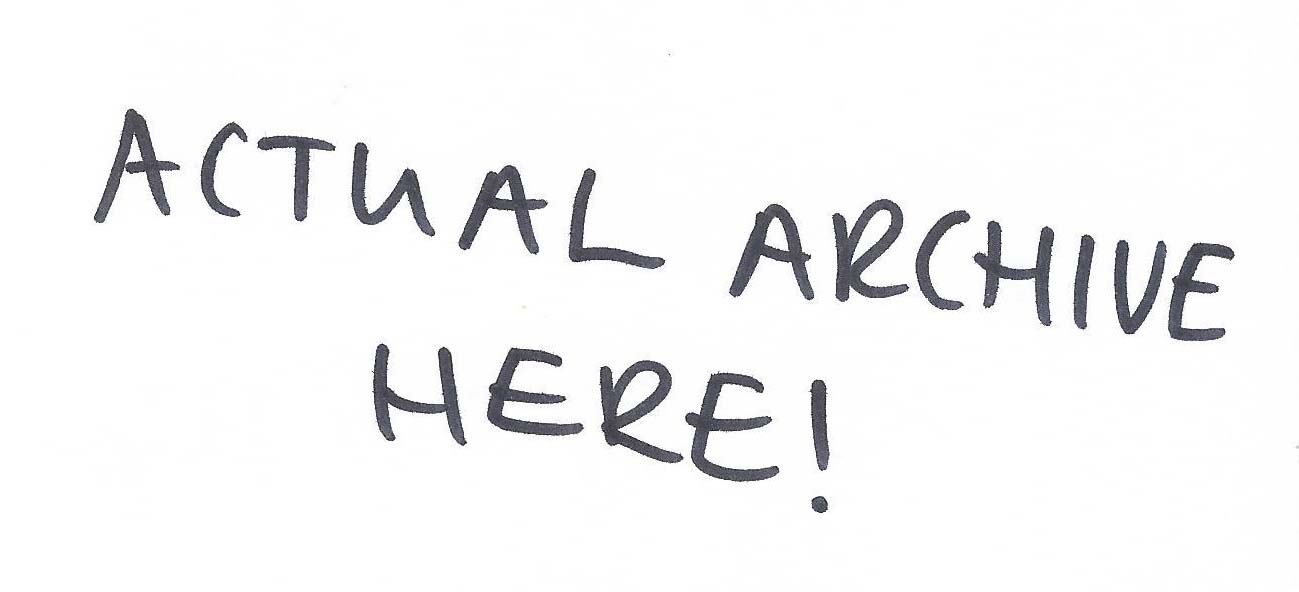 ACTUAL ARCHIVE
HERE!